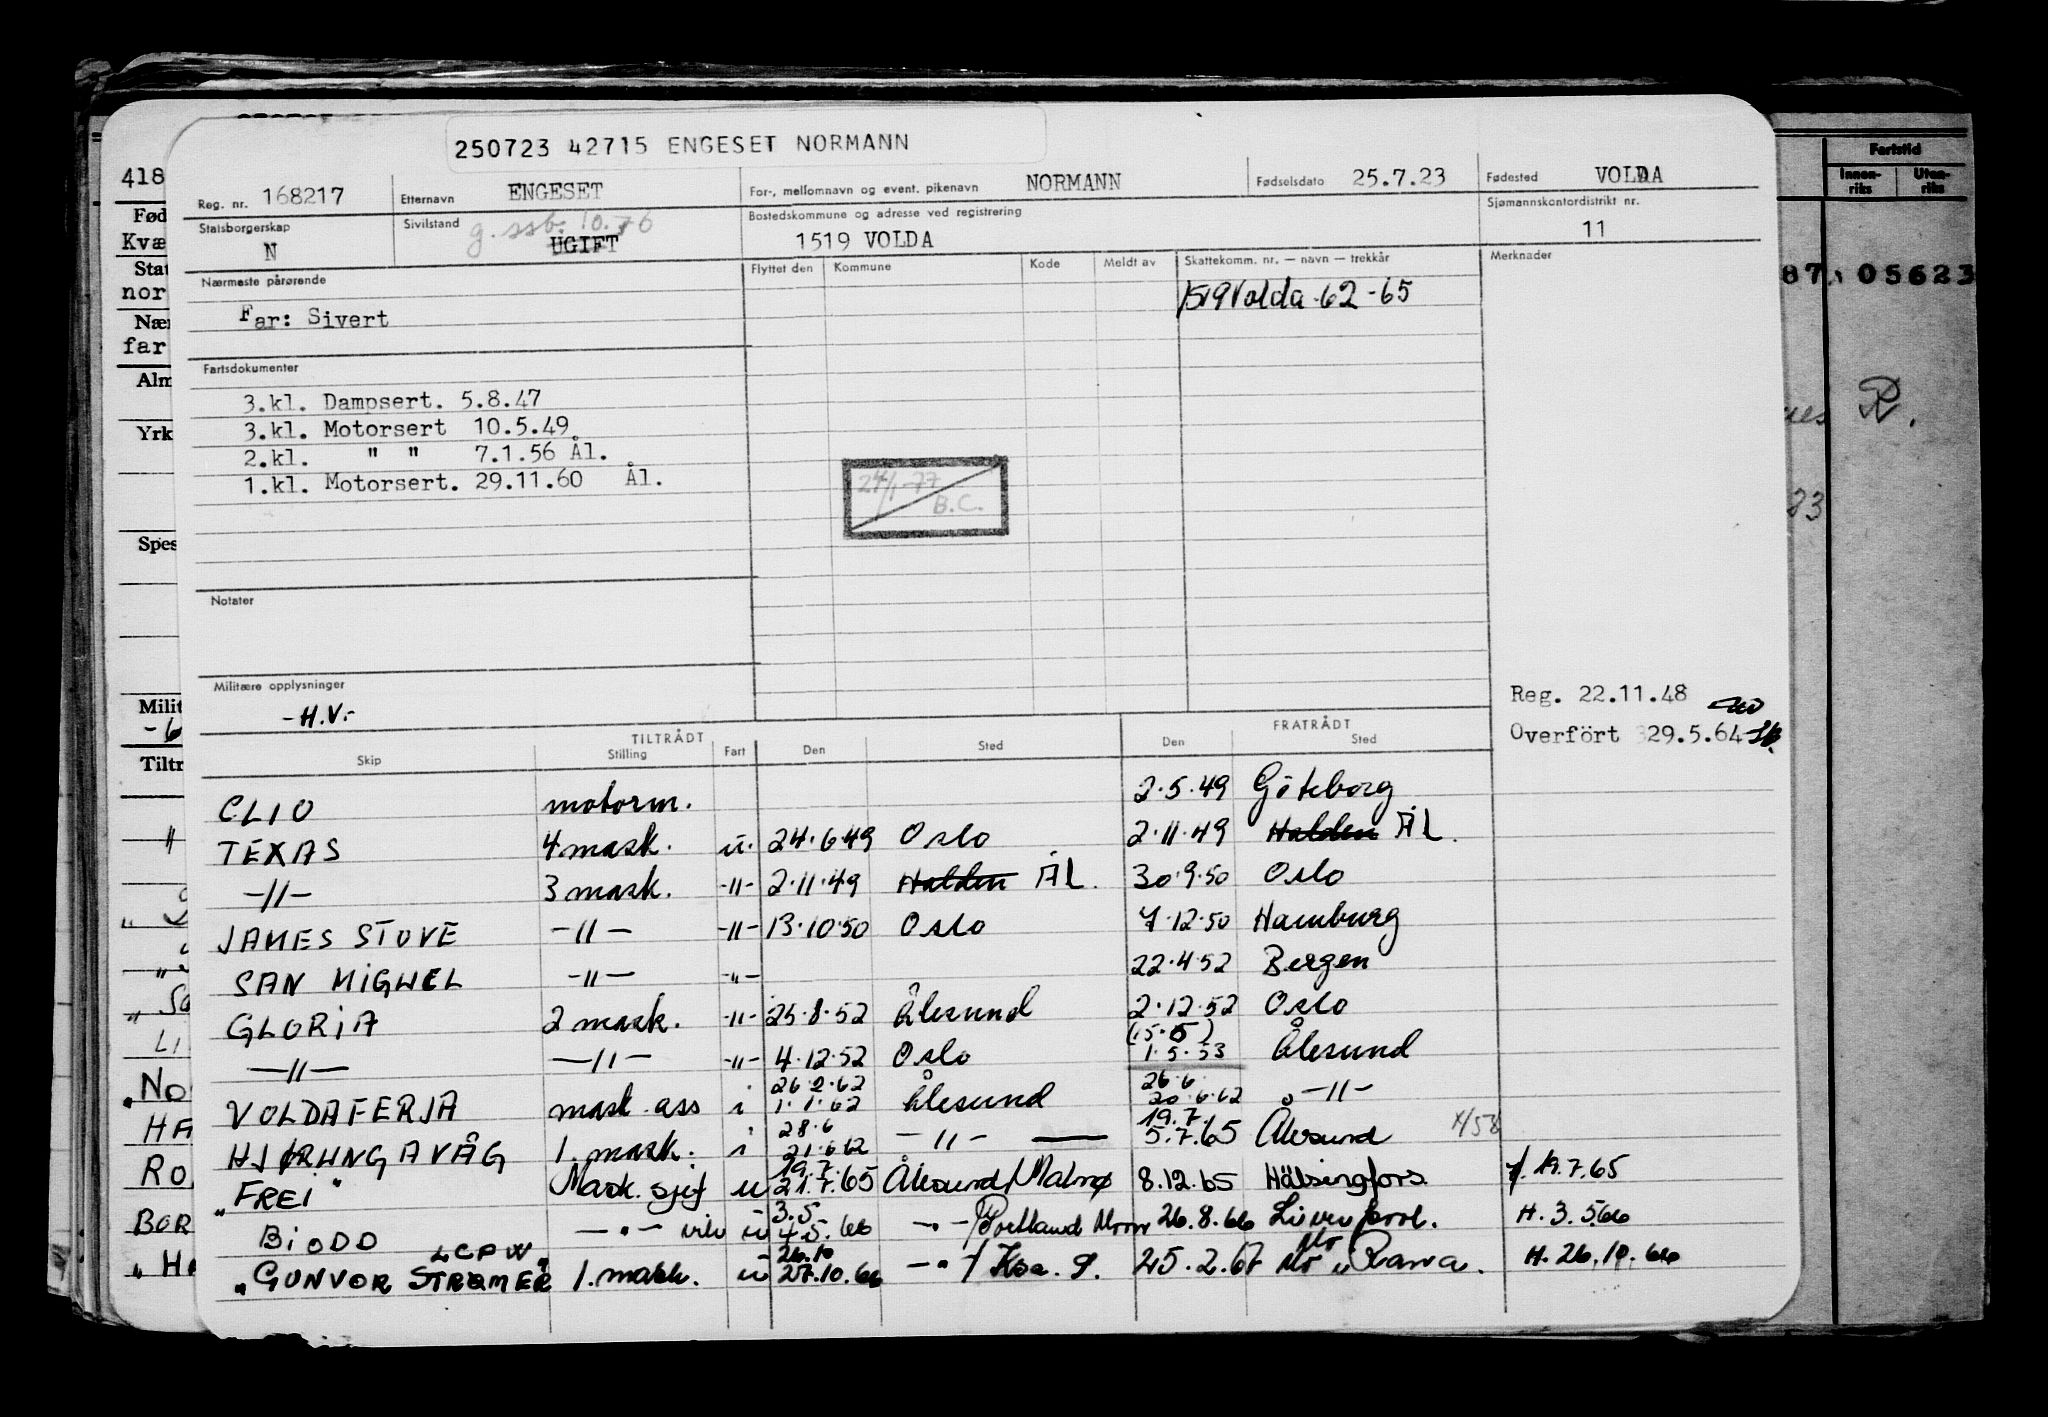 250723 42715 ENGESET NORMANN
418
Reg. nr. 168217 Etternavn ENGESET For-, mellomnavn og event. pikenavn NORMANN Fødselsdato 25.7.23 Fødested VOLDA
Statsborgerskap N Sivilstand UGIFT g. ssb. 10.76 Bostedskommune og adresse ved registrering 1519 VOLDA Sjømannskontordistrikt nr. 11
Nærmeste pårørende Flyttet den Kommune Kode Meldt av Skattekomm. nr. — navn — trekkår Merknader
1519 Volda -62 -65
Far: Sivert
Fartsdokumenter
3.kl. Dampsert. 5.8.47
3.kl. Motorsert 10.5.49
2.kl. " " 7.1.56 Ål.
1.kl. Motorsert. 29.11.60 Ål.
24/1-77
B.C.
Notater
Militære opplysninger
-H.V.-
Reg. 22.11.48
Overført 29.5.64
TILTRÅDT FRATRÅDT
Skip Stilling Fart Den Sted Den Sted
CLIO motorm. 2.5.49 Göteborg
TEXAS 4 mask. u. 24.6.49 Oslo 2.11.49 Halden ÅL.
-"- 3 mask. -"- 2.11.49 Halden ÅL. 30.9.50 Oslo
JAMES STOVE -"- -"- 13.10.50 Oslo 7.12.50 Hamburg
SAN MIGUEL -"- -"- 22.4.52 Bergen
GLORIA 2 mask. -"- 25.8.52 Ålesund 2.12.52 Oslo
(15.5)
-"- -"- -"- 4.12.52 Oslo 1.5.53 Ålesund
26.2.62 26.6
VOLDAFERJA mask. ass i 1.1.62 Ålesund 20.6.62 -"-
28.6 19.7.
HJØRUNGAVÅG 1. mask. i 21.6.62 -"- 5.7.65 Ålesund x/58
19.7.
"FREI" Mask. sjef u 21.7.65 Ålesund/Malmø 8.12.65 Hälsingfors 19.7.65
3.5
BIODD -"- u 4.5.66 -"- 26.8.66 Liverpool. H. 3.5.66
26.10
"GUNVOR STRØMER" 1. mask. u 27.10.66 -"- 25.2.67 Mo i Rana. H. 26.10.66
Fød
Kvæ
Stat
nor
Nær
far
Alm
Yrk
Spes
Milit
- 6
Tiltr
"
LI
"No
HA
RO
BOR
"HA
Fartstid
Innen-
riks
Uten-
riks
87 05623
R.